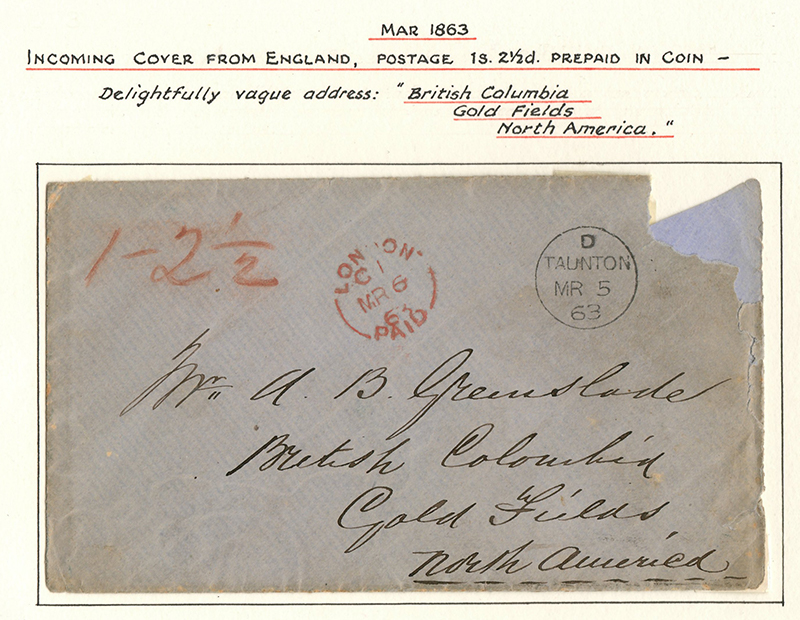 MAR 1863
INCOMING COVER FROM ENGLAND, POSTAGE 1s. 2½d. PREPAID IN COIN –
Delightfully vague address: "British Columbia
Gold Fields
North America."
1-2½
LONDON
C 1
MR 6
63
PAID
D
TAUNTON
MR 5
63
Mr. A. B. Greenslade
British Colombia
Gold Fields
North America